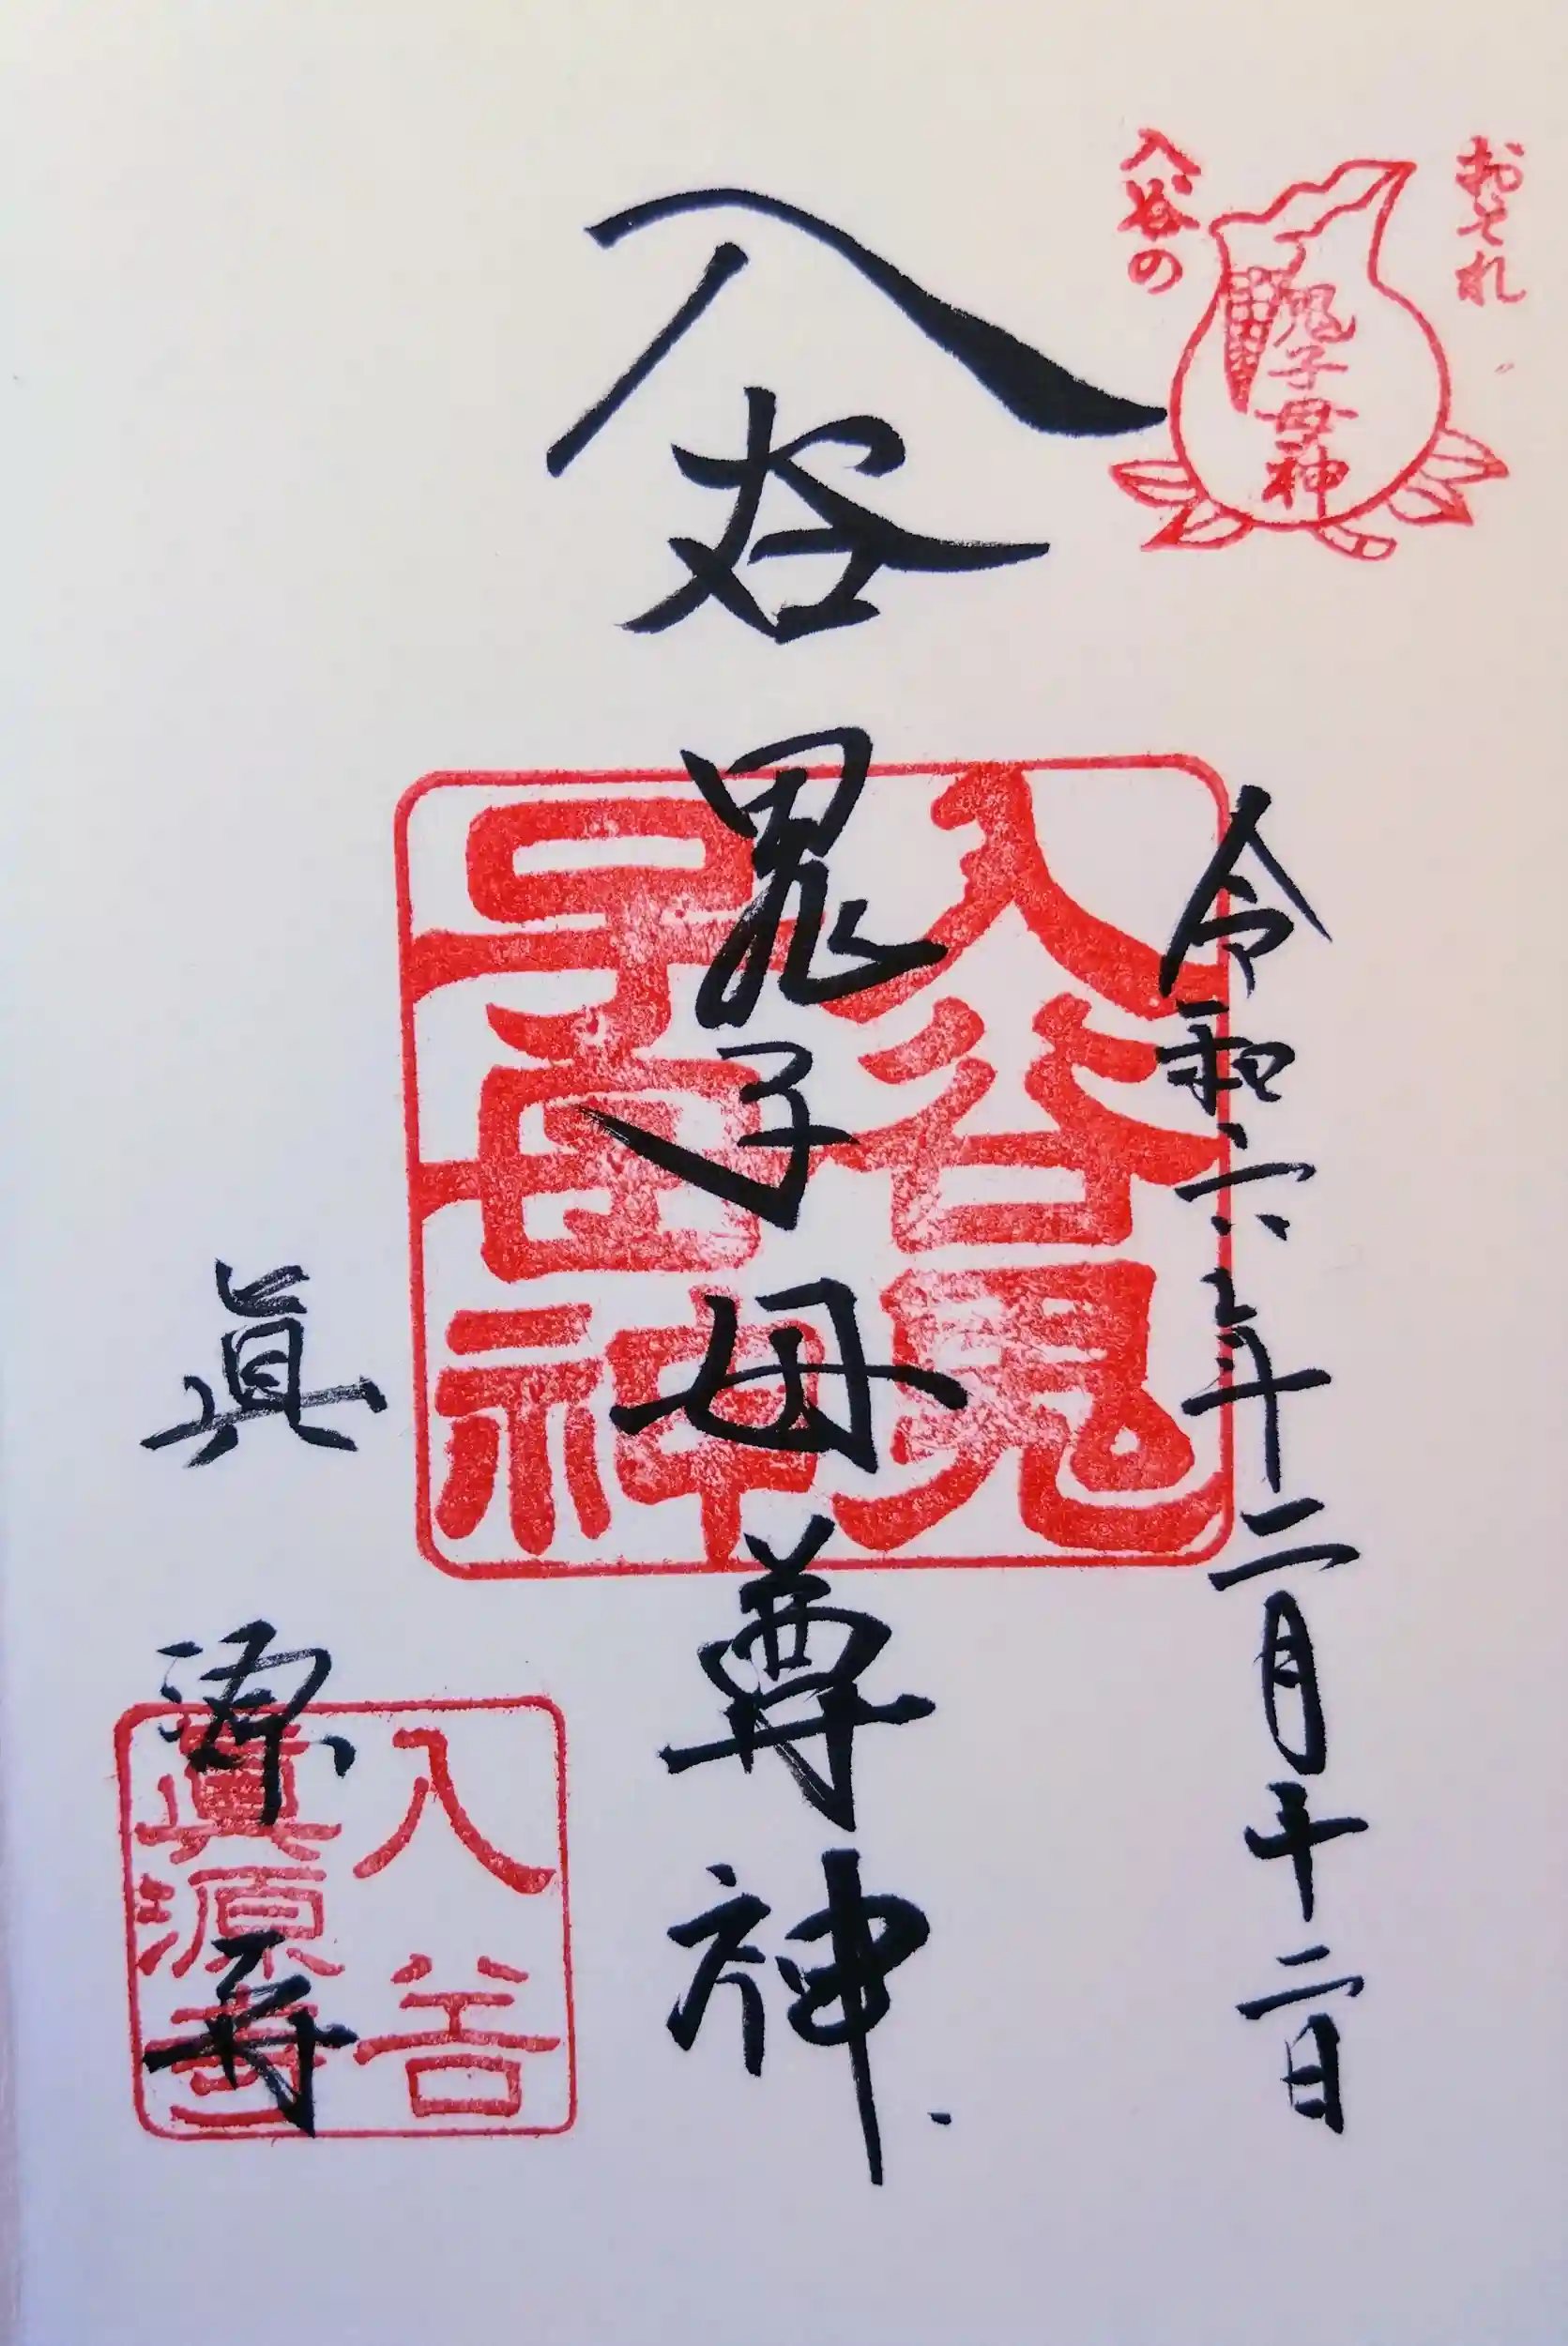 おそれ
入谷の
鬼子母神
令和六年十二月十二日
入谷鬼子母尊神
入谷鬼
子母神
眞源寺
入谷
眞源寺